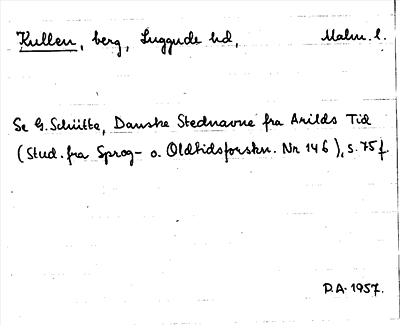 Kullen, berg, Luggude hd, Malm. l.
Se G. Schütte, Danske Stednavne fra Arilds Tid
(Stud. fra Sprog- o. Oldtidsforskn. Nr 146), s. 75 f.
D.A. 1957.